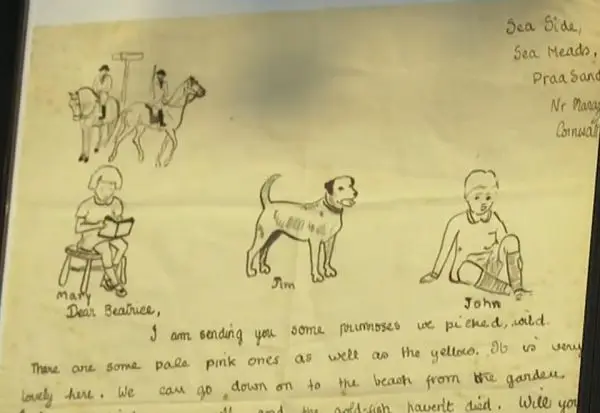 Sea Side,
Sea Meads,
Praa Sand
Nr Maraz
Cornwall
Mary
Jim
John
Dear Beatrice,
I am sending you some primroses we picked, wild.
There are some pale pink ones as well as the yellow. It is very
lovely here. We can go down on to the beach from the garden.
and the gold-fish havent died. Will you